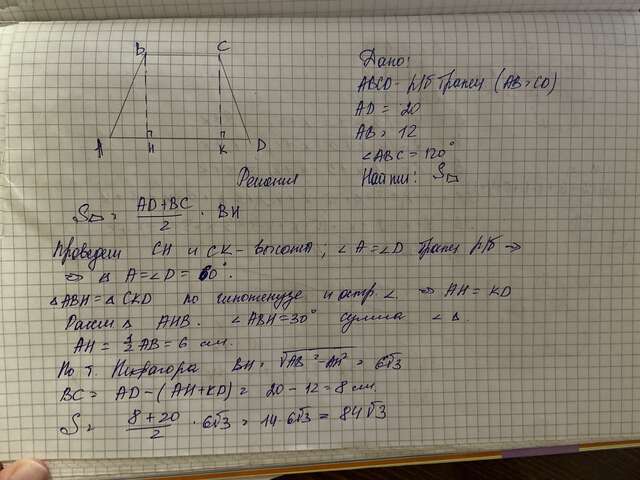 B C
A H K D
Дано:
ABCD - р/б трапец (AB=CD)
AD = 20
AB = 12
∠ABC = 120°
Найти: S
Решения
S = AD+BC/2 · BH
Проведем CH и CK - высоты; ∠A=∠D трапец р/б ⇒
⇒ ∠A=∠D = 60°.
△ABH=△CKD по гипотенузе и остр. ∠ ⇒ AH = KD
Рассм △ AHB. ∠ABH=30° сумма ∠ △.
AH = 1/2 AB = 6 см.
По т. Пифагора BH = √AB²-AH² = 6√3
BC = AD-(AH+KD) = 20-12=8 см.
S = 8+20/2 · 6√3 = 14·6√3 = 84√3